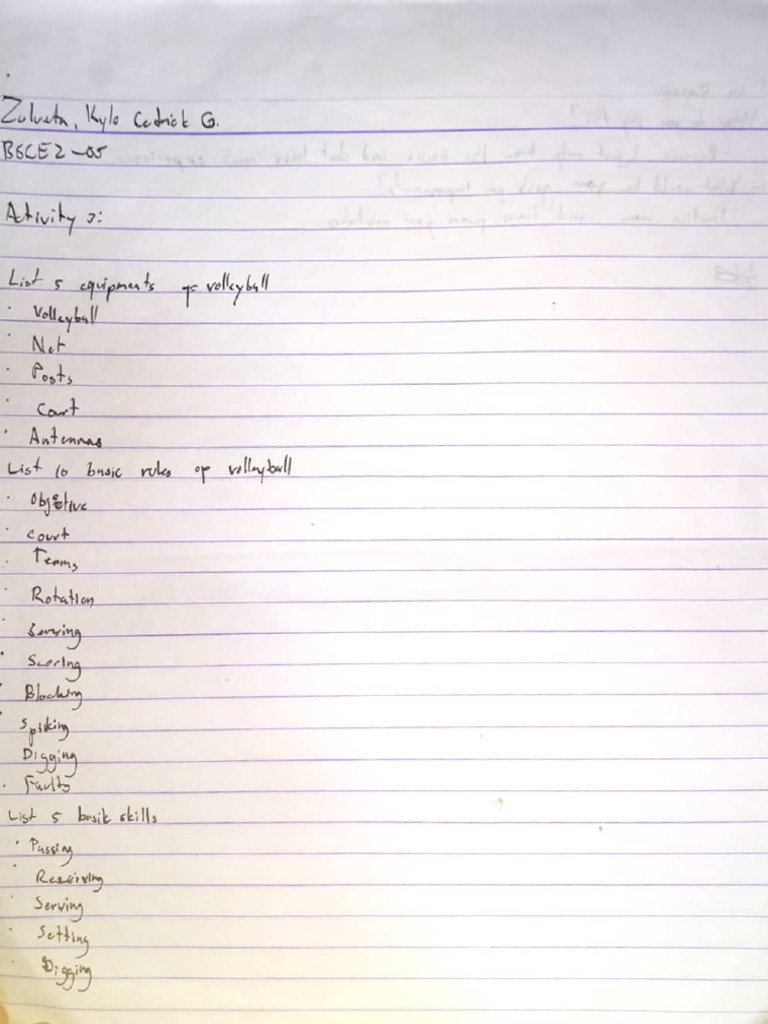 Zulueta, Kylo Cedrick G.
BSCE 2-05
Activity 2:
List 5 equipments of volleyball
· Volleyball
· Net
· Posts
· Court
· Antennas
List 10 basic rules of volleyball
· Objective
· Court
· Teams
· Rotation
· Serving
· Scoring
· Blocking
· Spiking
Digging
· Faults
List 5 basic skills
· Passing
· Receiving
· Serving
· Setting
· Digging